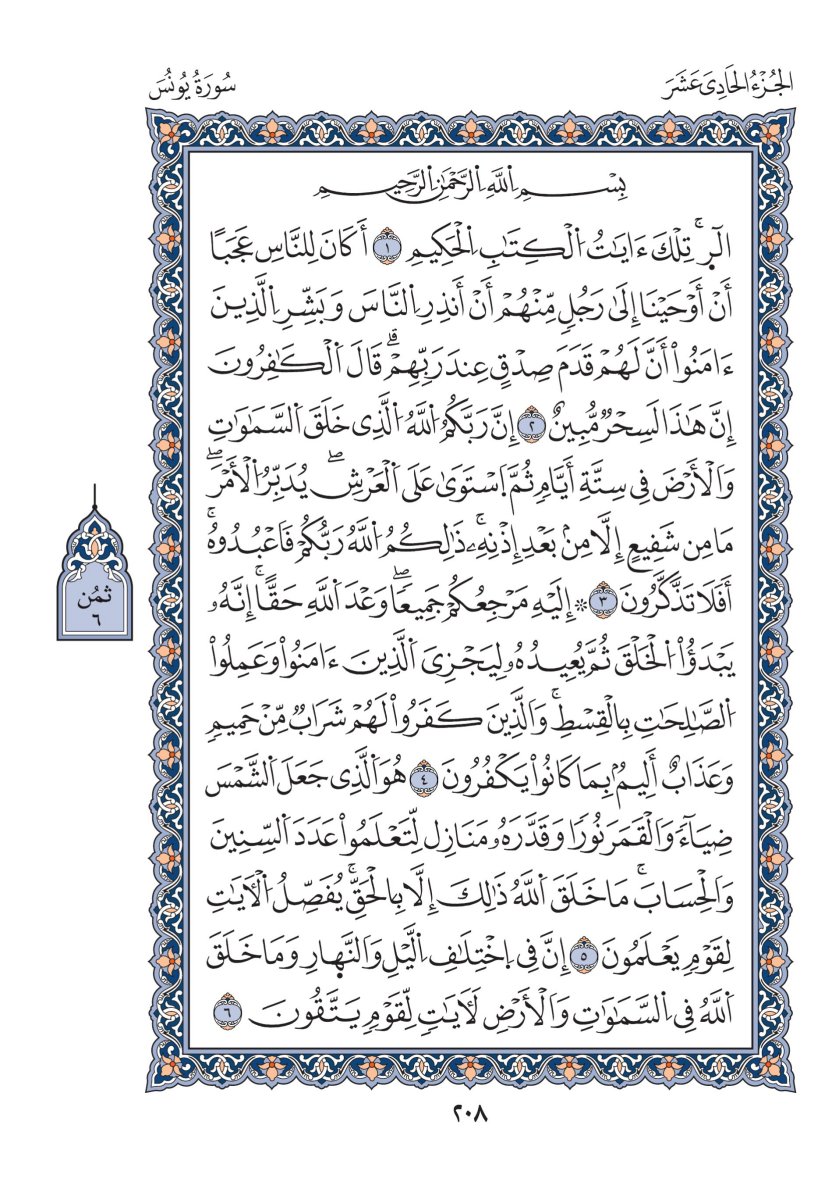 الجُزْءُ الحَادِىَ عَشَرَ
سُورَةُ يُونُسَ
بِسْمِ اِللَّهِ اِلرَّحْمَٰنِ اِلرَّحِيمِ
الٓرۚ تِلْكَ ءَايَٰتُ اُلْكِتَٰبِ اِلْحَكِيمِ ١ أَكَانَ لِلنَّاسِ عَجَبًا
أَنْ أَوْحَيْنَا إِلَىٰ رَجُلٍ مِّنْهُمْ أَنْ أَنذِرِ اِلنَّاسَ وَبَشِّرِ اِلَّذِينَ
ءَامَنُواْ أَنَّ لَهُمْ قَدَمَ صِدْقٍ عِندَ رَبِّهِمْۗ قَالَ اَلْكَٰفِرُونَ
إِنَّ هَٰذَا لَسِحْرٌ مُّبِينٌ ٢ إِنَّ رَبَّكُمُ اُللَّهُ اُلَّذِى خَلَقَ اَلسَّمَٰوَٰتِ
وَالْأَرْضَ فِى سِتَّةِ أَيَّامٍ ثُمَّ اَسْتَوَىٰ عَلَى اَلْعَرْشِۖ يُدَبِّرُ اُلْأَمْرَۖ
مَا مِن شَفِيعٍ إِلَّا مِنۢ بَعْدِ إِذْنِهِۦۚ ذَٰلِكُمُ اُللَّهُ رَبُّكُمْ فَاعْبُدُوهُۚ
أَفَلَا تَذَّكَّرُونَ ٣ ۞ إِلَيْهِ مَرْجِعُكُمْ جَمِيعًاۖ وَعْدَ اَللَّهِ حَقًّاۚ إِنَّهُۥ
يَبْدَؤُاْ اُلْخَلْقَ ثُمَّ يُعِيدُهُۥ لِيَجْزِىَ اَلَّذِينَ ءَامَنُواْ وَعَمِلُواْ
اُلصَّٰلِحَٰتِ بِالْقِسْطِۚ وَالَّذِينَ كَفَرُواْ لَهُمْ شَرَابٌ مِّنْ حَمِيمٍ
وَعَذَابٌ أَلِيمٌۢ بِمَا كَانُواْ يَكْفُرُونَ ٤ هُوَ اَلَّذِى جَعَلَ اَلشَّمْسَ
ضِيَآءً وَالْقَمَرَ نُورًا وَقَدَّرَهُۥ مَنَازِلَ لِتَعْلَمُواْ عَدَدَ اَلسِّنِينَ
وَالْحِسَابَۚ مَا خَلَقَ اَللَّهُ ذَٰلِكَ إِلَّا بِالْحَقِّۚ يُفَصِّلُ اُلْأٓيَٰتِ
لِقَوْمٍ يَعْلَمُونَ ٥ إِنَّ فِى اِخْتِلَٰفِ اِلَّيْلِ وَالنَّهَارِ وَمَا خَلَقَ
اَللَّهُ فِى اِلسَّمَٰوَٰتِ وَالْأَرْضِ لَأٓيَٰتٍ لِّقَوْمٍ يَتَّقُونَ ٦
ثمُن
٦
٢٠٨